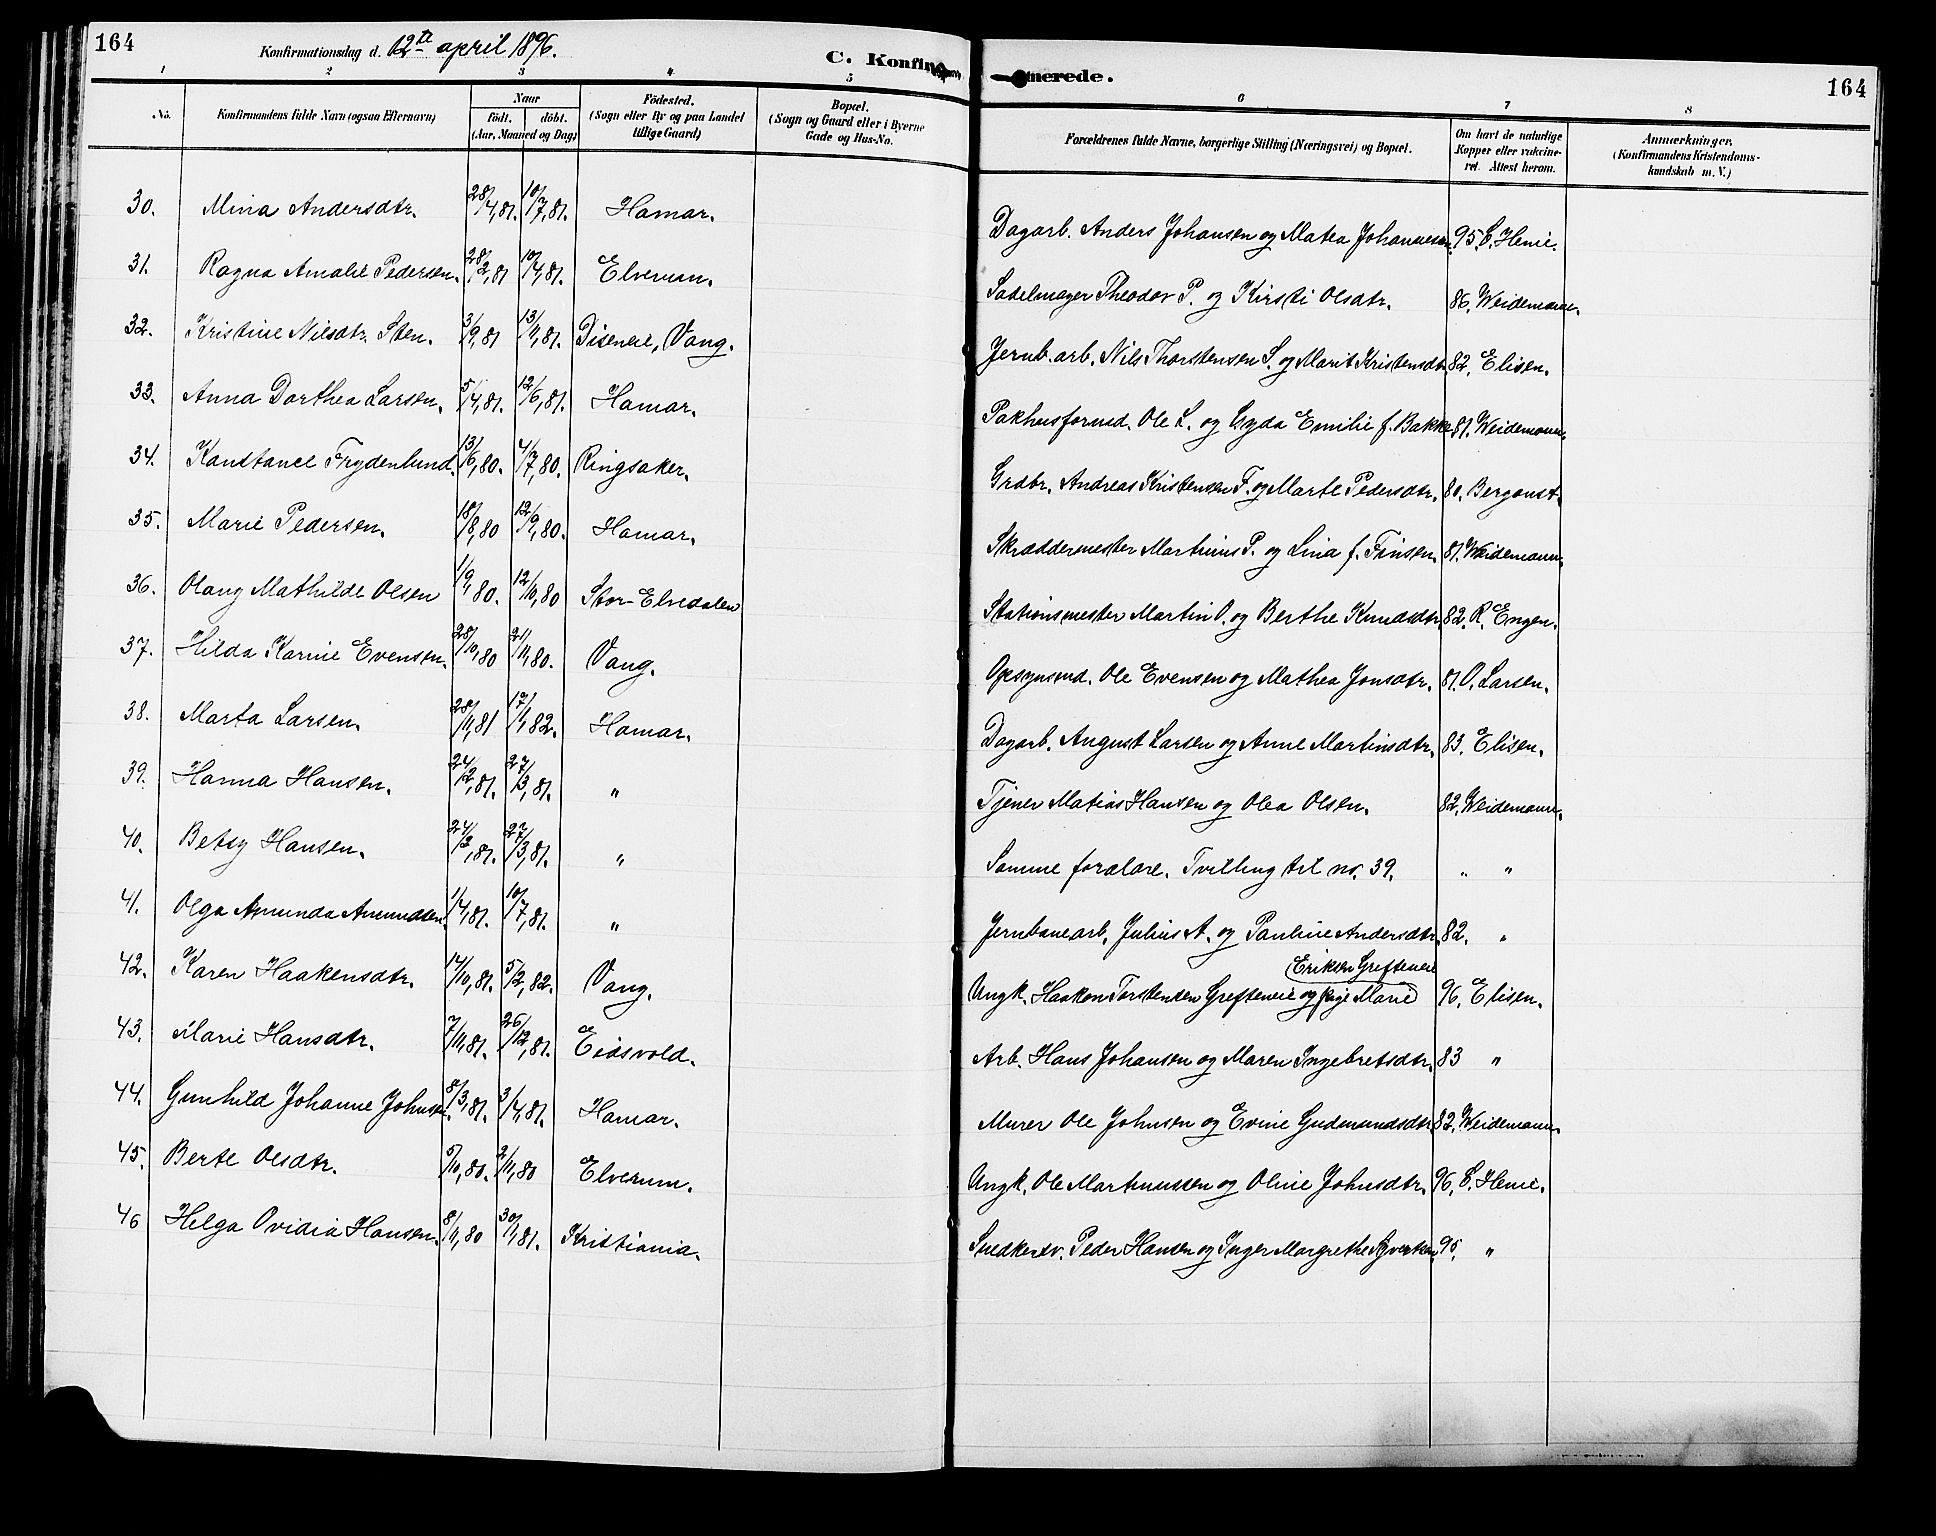 164
Konfirmationsdag d. 12te april 1896.
C. Konfirmerede.
164
1 2 3 4 5 6 7 8
No. Konfirmandens fulde Navn (ogsaa Efternavn) Naar födt. döbt. (Aar, Maaned og Dag) Födested. (Sogn eller By og paa Landet tillige Gaard) Bopæl. (Sogn og Gaard eller i Byerne Gade og Hus-No. Forældrenes fulde Navne, borgerlige Stilling (Næringsvei) og Bopæl. Om havt de naturlige Kopper eller vakcineret. Attest herom. Anmærkninger. (Konfirmandens Kristendomskundskab m. V.)
30. Mina Andersdtr. 28/4, 81. 10/7, 81. Hamar. Dagarb. Anders Johansen og Matea Johannesen. 95. C. Henie.
31. Ragna Amalie Pedersen. 28/2, 81 10/4, 81. Elverum. Sadelmager Theodor P. og Kirsti Olsdtr. 86. Weidemann.
32. Kristine Nilsdtr. Sten. 3/9, 81 13/11, 81. Diseneie, Vang. Jernb. arb. Nils Thorstensen S. og Marit Kristensdtr. 82. Elisen.
33. Anna Dorthea Larsen. 5/4, 81. 12/6, 81. Hamar. Pakhusformd. Ole L. og Gyda Emilie f. Bakke 81. Weidemann.
34. Konstance Frydenlund. 13/6, 80. 4/7, 80. Ringsaker. Grdbr. Andreas Kristensen F. og Marte Pedersdtr. 80. Bergan st.
35. Marie Pedersen. 18/8, 80 12/9, 80. Hamar. Skræddermester Martinus P. og Lina f. Finsen. 81. Weidemann.
36. Olaug Mathilde Olsen 1/9, 80. 12/10, 80 Stor-Elvedalen Stationsmester Martin O. og Berthe Knudsdtr. 82. R. Engen.
37. Hilda Karine Evensen. 28/10, 80 21/11, 80. Vang. Opsynsmd. Ole Evensen og Mathea Jonsdtr. 81. O. Larsen.
38. Marta Larsen. 28/11, 81 17/1, 82. Hamar. Dagarb. August Larsen og Anne Martinsdtr. 83. Elisen.
39. Hanna Hansen. 24/2, 81. 27/3, 81. " Tjener Matias Hansen og Olea Olsen. 82. Weidemann.
40. Betsy Hansen. 24/2, 81. 27/3, 81. " Samme forældre. Tvilling til no. 39. " "
41. Olga Amunda Amundsen. 1/4, 81. 10/7, 81. " Jernbanearb. Julius A. og Pauline Andersdtr. 82. "
42. Karen Haakensdtr. 14/10, 81. 5/2, 82. Vang. Ungk. Haakon Torstensen Grefteneie og pige Marie Eriksen Grefteneie 96. Elisen.
43. Marie Hansdtr. 7/11, 81. 26/12, 81. Eidsvold. Arb. Hans Johansen og Maren Ingebretsdtr. 83 "
44. Gunhild Johanne Johnsen. 8/3, 81. 3/4, 81. Hamar. Murer Ole Johnsen og Evine Gudmundsdtr. 82. Weidemann.
45. Berte Olsdtr. 5/10, 80. 2/11, 80 Elverum. Ungk. Ole Martinussen og Oline Johnsdtr. 96. C. Henie.
46 Helga Ovidia Hansen. 8/11, 80 30/1, 81. Kristiania. Snedkersv. Peder Hansen og Inger Margrethe 95. "